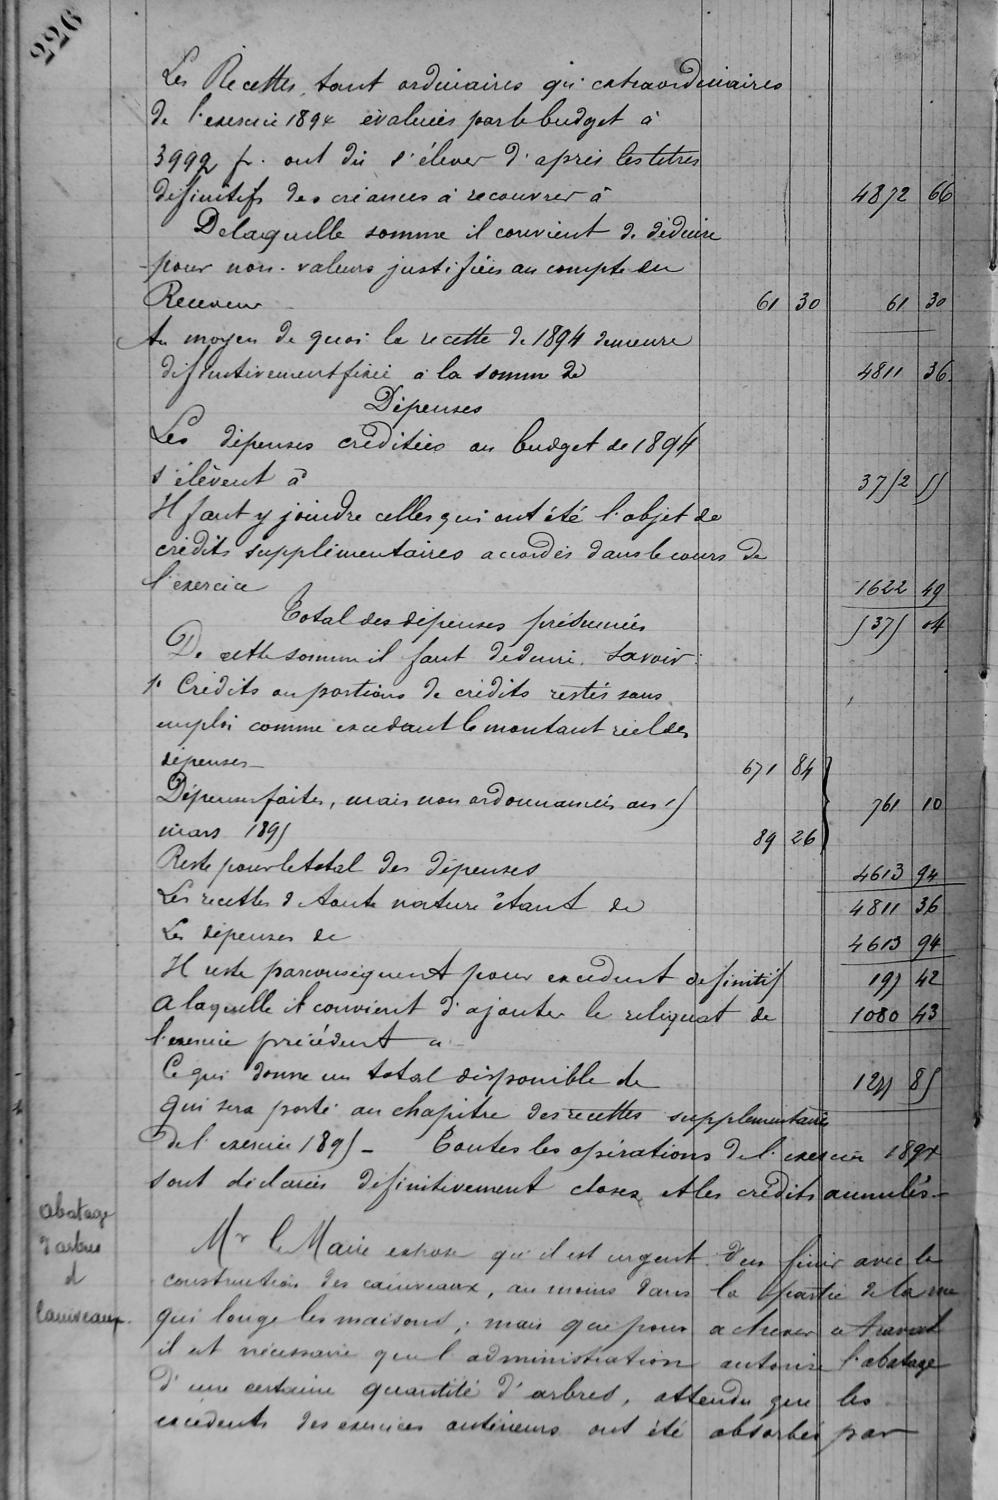 226
Les Recettes, tant ordinaires qu'extraordinaires
de l'exercice 1894 évaluées par le budget à
3992 fr. ont dû s'élever d'après les titres
définitifs des créances à recouvrer à 4872 66
De laquelle somme il convient de déduire
pour non-valeurs justifiées au compte du
Receveur 61 30 61 30
Au moyen de quoi la recette de 1894 demeure
définitivement fixée à la somme de 4811 36
Dépenses
Les dépenses créditées au budget de 1894
s'élèvent à 3752 55
Il faut y joindre celles qui ont été l'objet de
crédits supplémentaires accordés dans le cours de
l'exercice 1622 49
Total des dépenses présumées 5375 04
De cette somme il faut déduire, savoir:
1° Crédits ou portions de crédits restés sans
emploi comme excédant le montant réel des
dépenses 671 84
Dépenses faites, mais non ordonnancées au 15 761 10
mars 1895 89 26
Reste pour le total des dépenses 4613 94
Les recettes de toute nature étant de 4811 36
Les dépenses de 4613 94
Il reste par conséquent pour excédent définitif 197 42
A laquelle il convient d'ajouter le reliquat de 1080 43
l'exercice précédent à
Ce qui donne un total disponible de 1277 85
qui sera porté au chapitre des recettes supplémentaires
de l'exercice 1895 - Toutes les opérations de l'exercice 1894
sont déclarées définitivement closes et les crédits annulés -
abatage
d'arbres
et
Caniveaux.
Mr le Maire expose qu'il est urgent d'en finir avec la
construction des caniveaux, au moins dans la partie de la rue
qui longe les maisons; mais que pour achever ce travail
il est nécessaire que l'administration autorise l'abatage
d'une certaine quantité d'arbres, attendu que les
excédents des exercices antérieurs ont été absorbés par